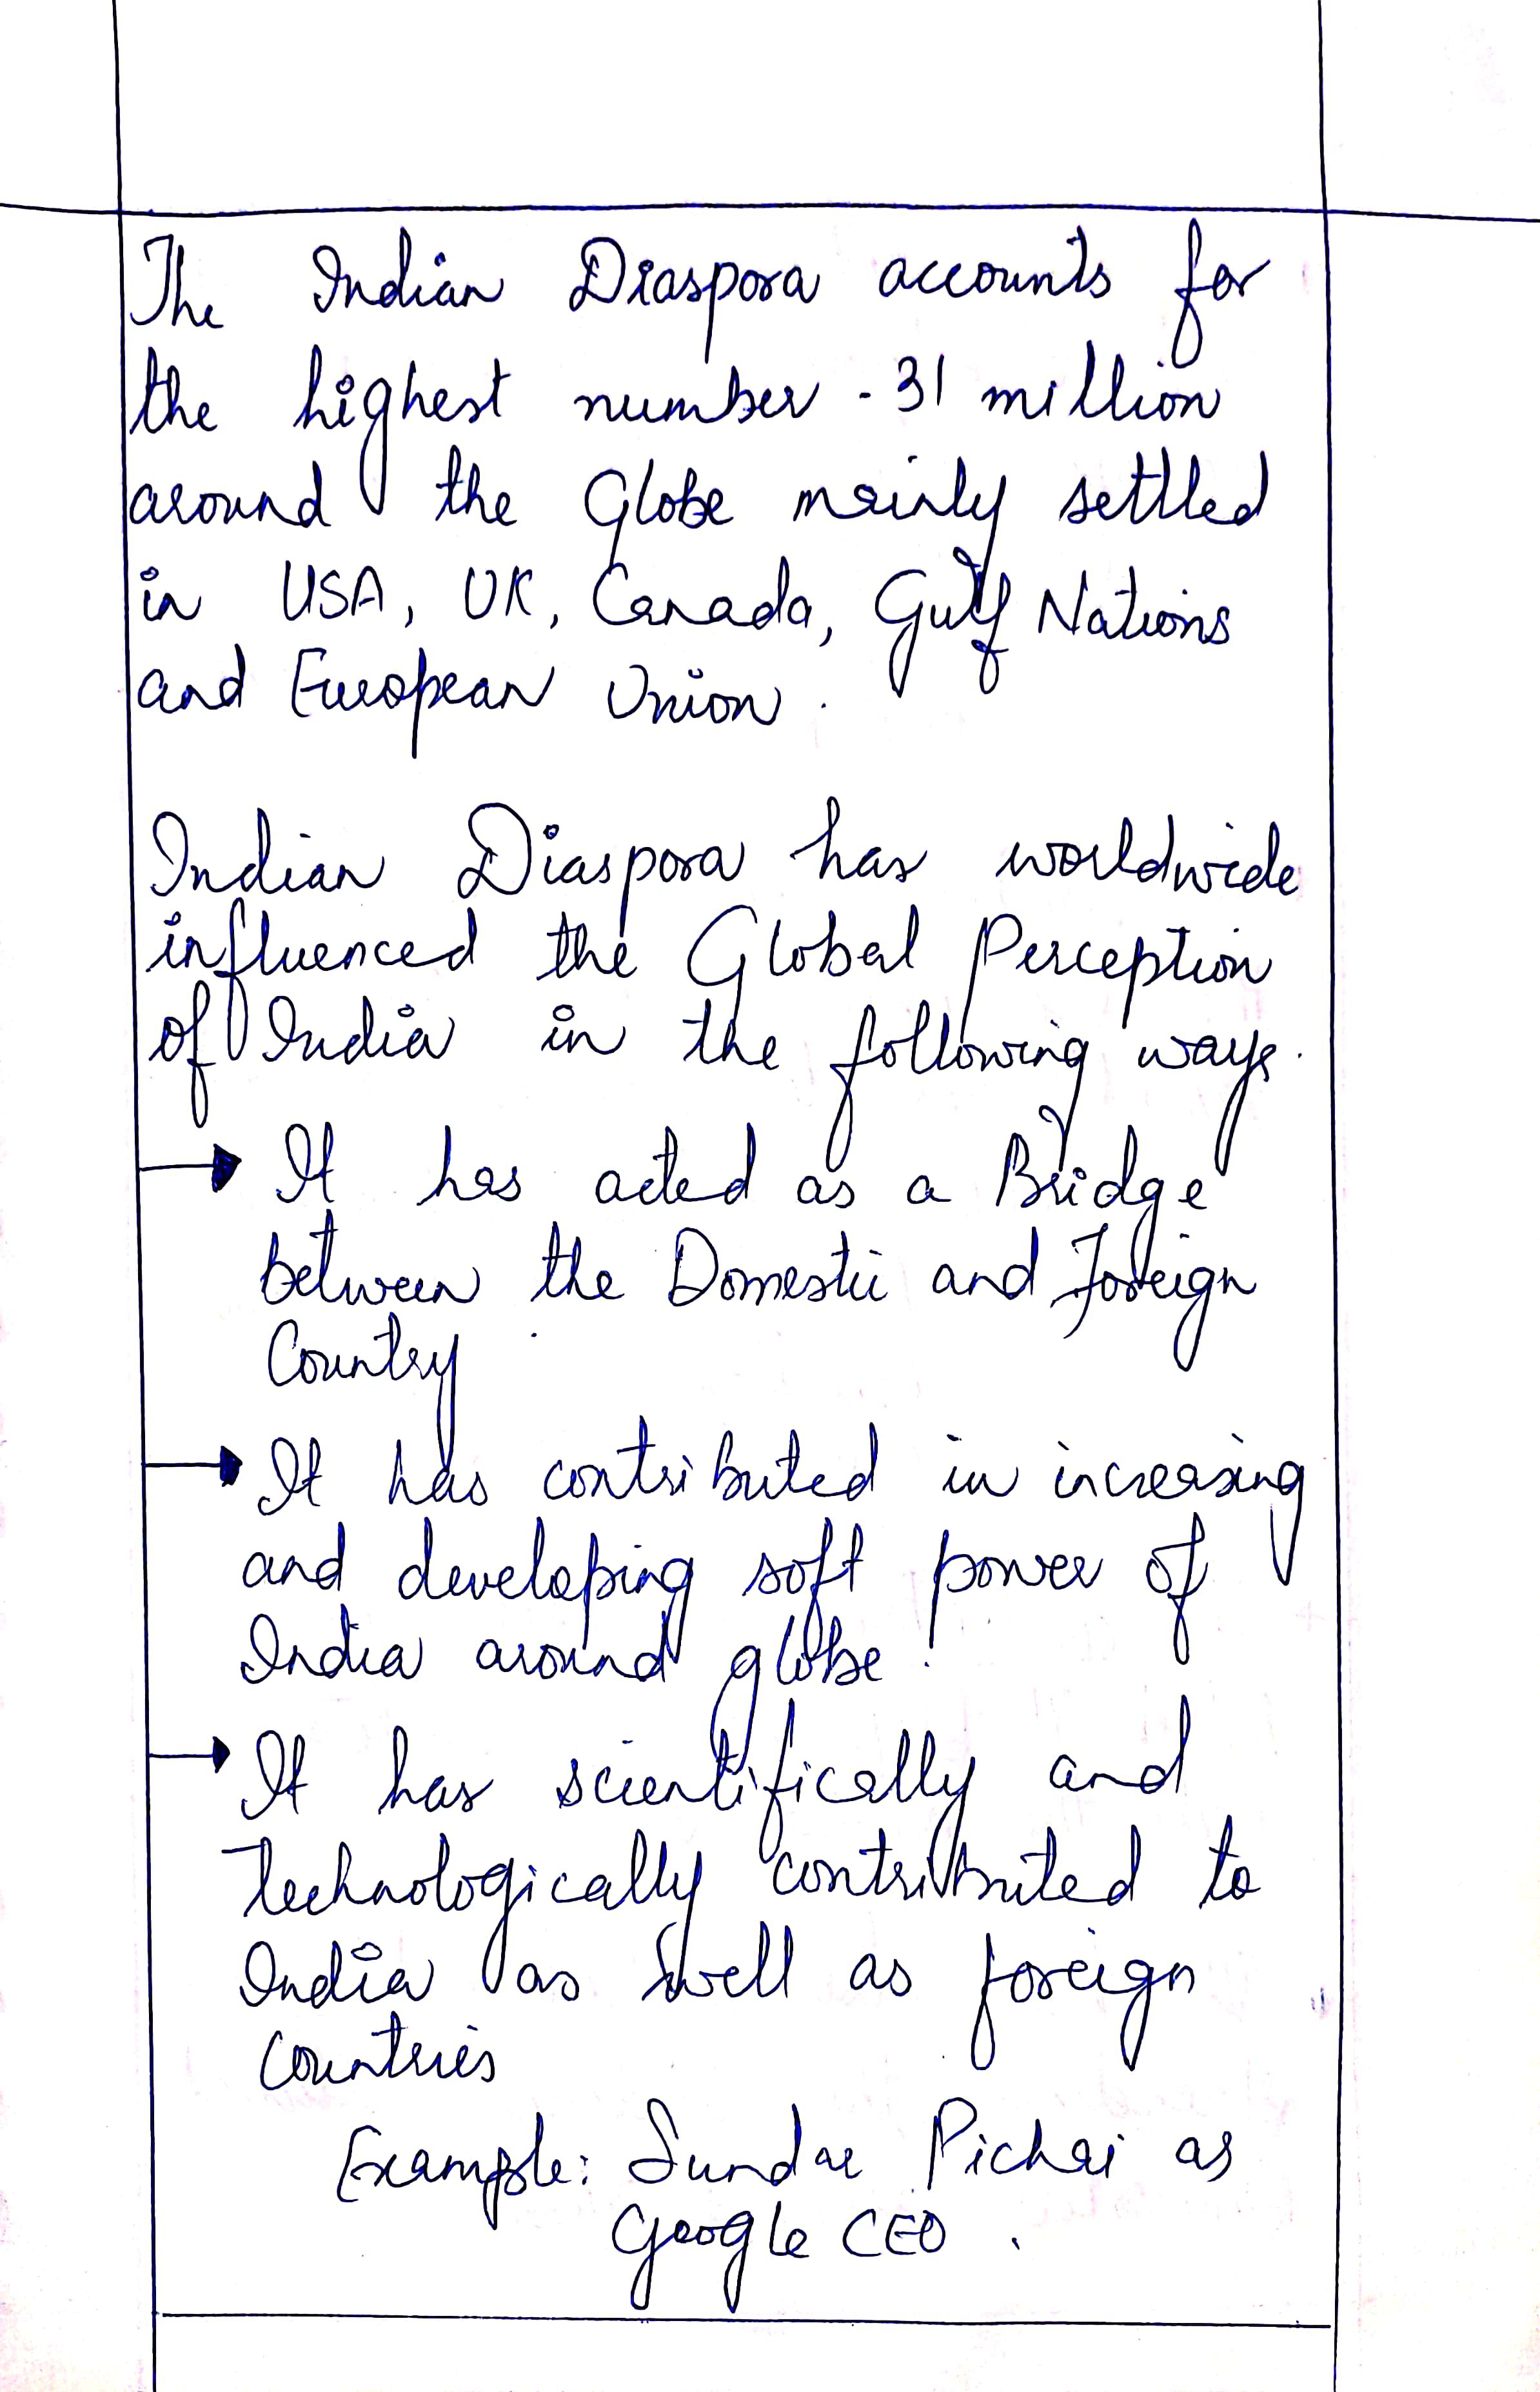 The Indian Diaspora accounts for
the highest number - 31 million
around the Globe mainly settled
in USA, UK, Canada, Gulf Nations
and European Union.
Indian Diaspora has worldwide
influenced the Global Perception
of India in the following ways.
It has acted as a Bridge
between the Domestic and Foreign
Country.
It has contributed in increasing
and developing soft power of
India around globe.
It has scientifically and
technologically contributed to
India as well as foreign
countries
Example: Sundar Pichai as
Google CEO.